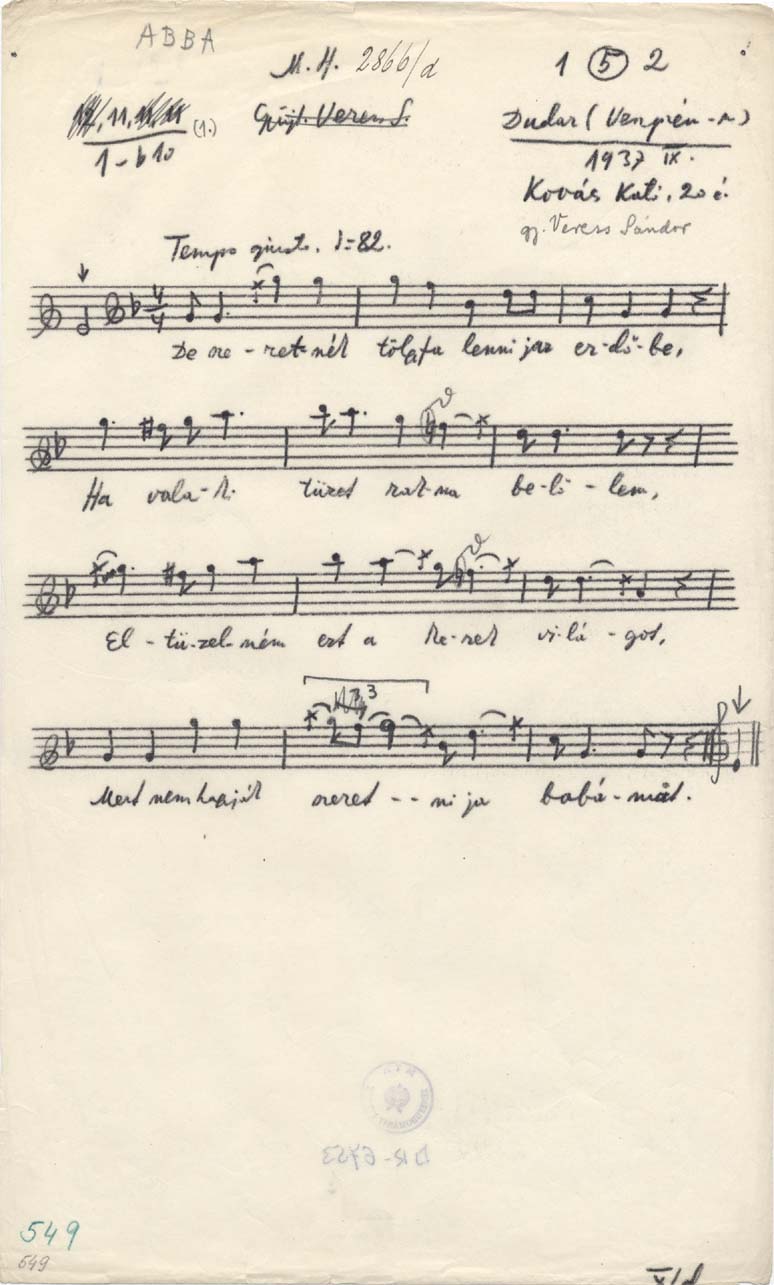 ABBA
M.H. 2866/d
1 5 2
11. (1.)
Gyűjt. Veress S.
Dudar (Veszprém-m)
1-b10
1937 IX.
Kovás Kati, 20 é.
gy. Veress Sándor
Tempo giusto. =82.
De sze-ret-nék tölgfa lenni jaz er-dő-be,
Ha vala-ki tüzet rak-na be-lő-lem,
El-tü-zel-ném ezt a ke-rek vi-lá-got,
3 3
Mert nem hagyják szeret--ni ja babá-mat.
549
549